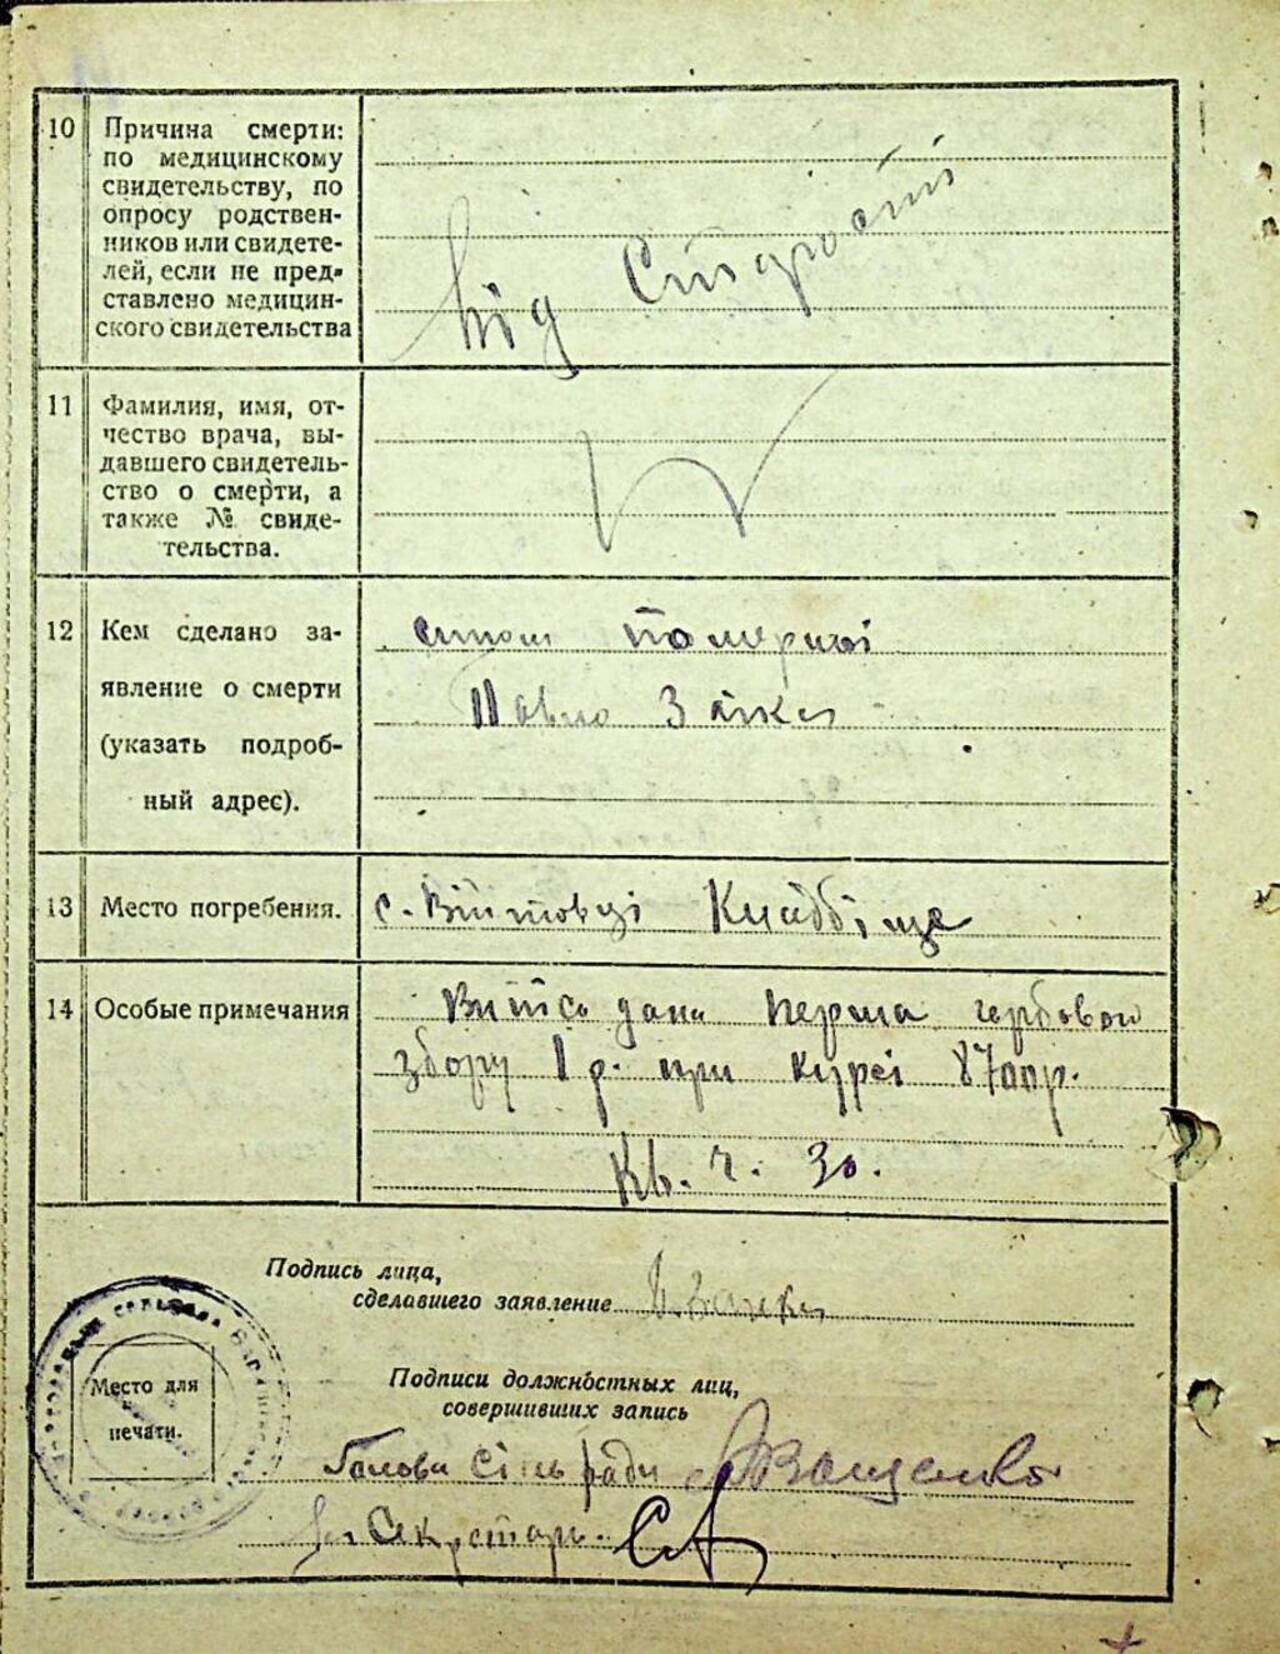 10 Причина смерти:
по медицинскому
свидетельству, по
опросу родствен-
ников или свидете-
лей, если не пред-
ставлено медицин-
ского свидетельства
від старости
11 Фамилия, имя, от-
чество врача, вы-
давшего свидетель-
ство о смерти, а
также № свиде-
тельства.
12 Кем сделано за-
явление о смерти
(указать подроб-
ный адрес).
помершої
Павло Заїка
13 Место погребения.
с. Війтовці Кладбіще
14 Особые примечания
дана перша гербового
збору 1 р. при курсі 8700р.
Кв. ч. 30.
Подпись лица,
сделавшего заявление П. Заїка
Место для
печати.
Подписи должностных лиц,
совершивших запись
Голова Сільради Ващенко
Секретарь